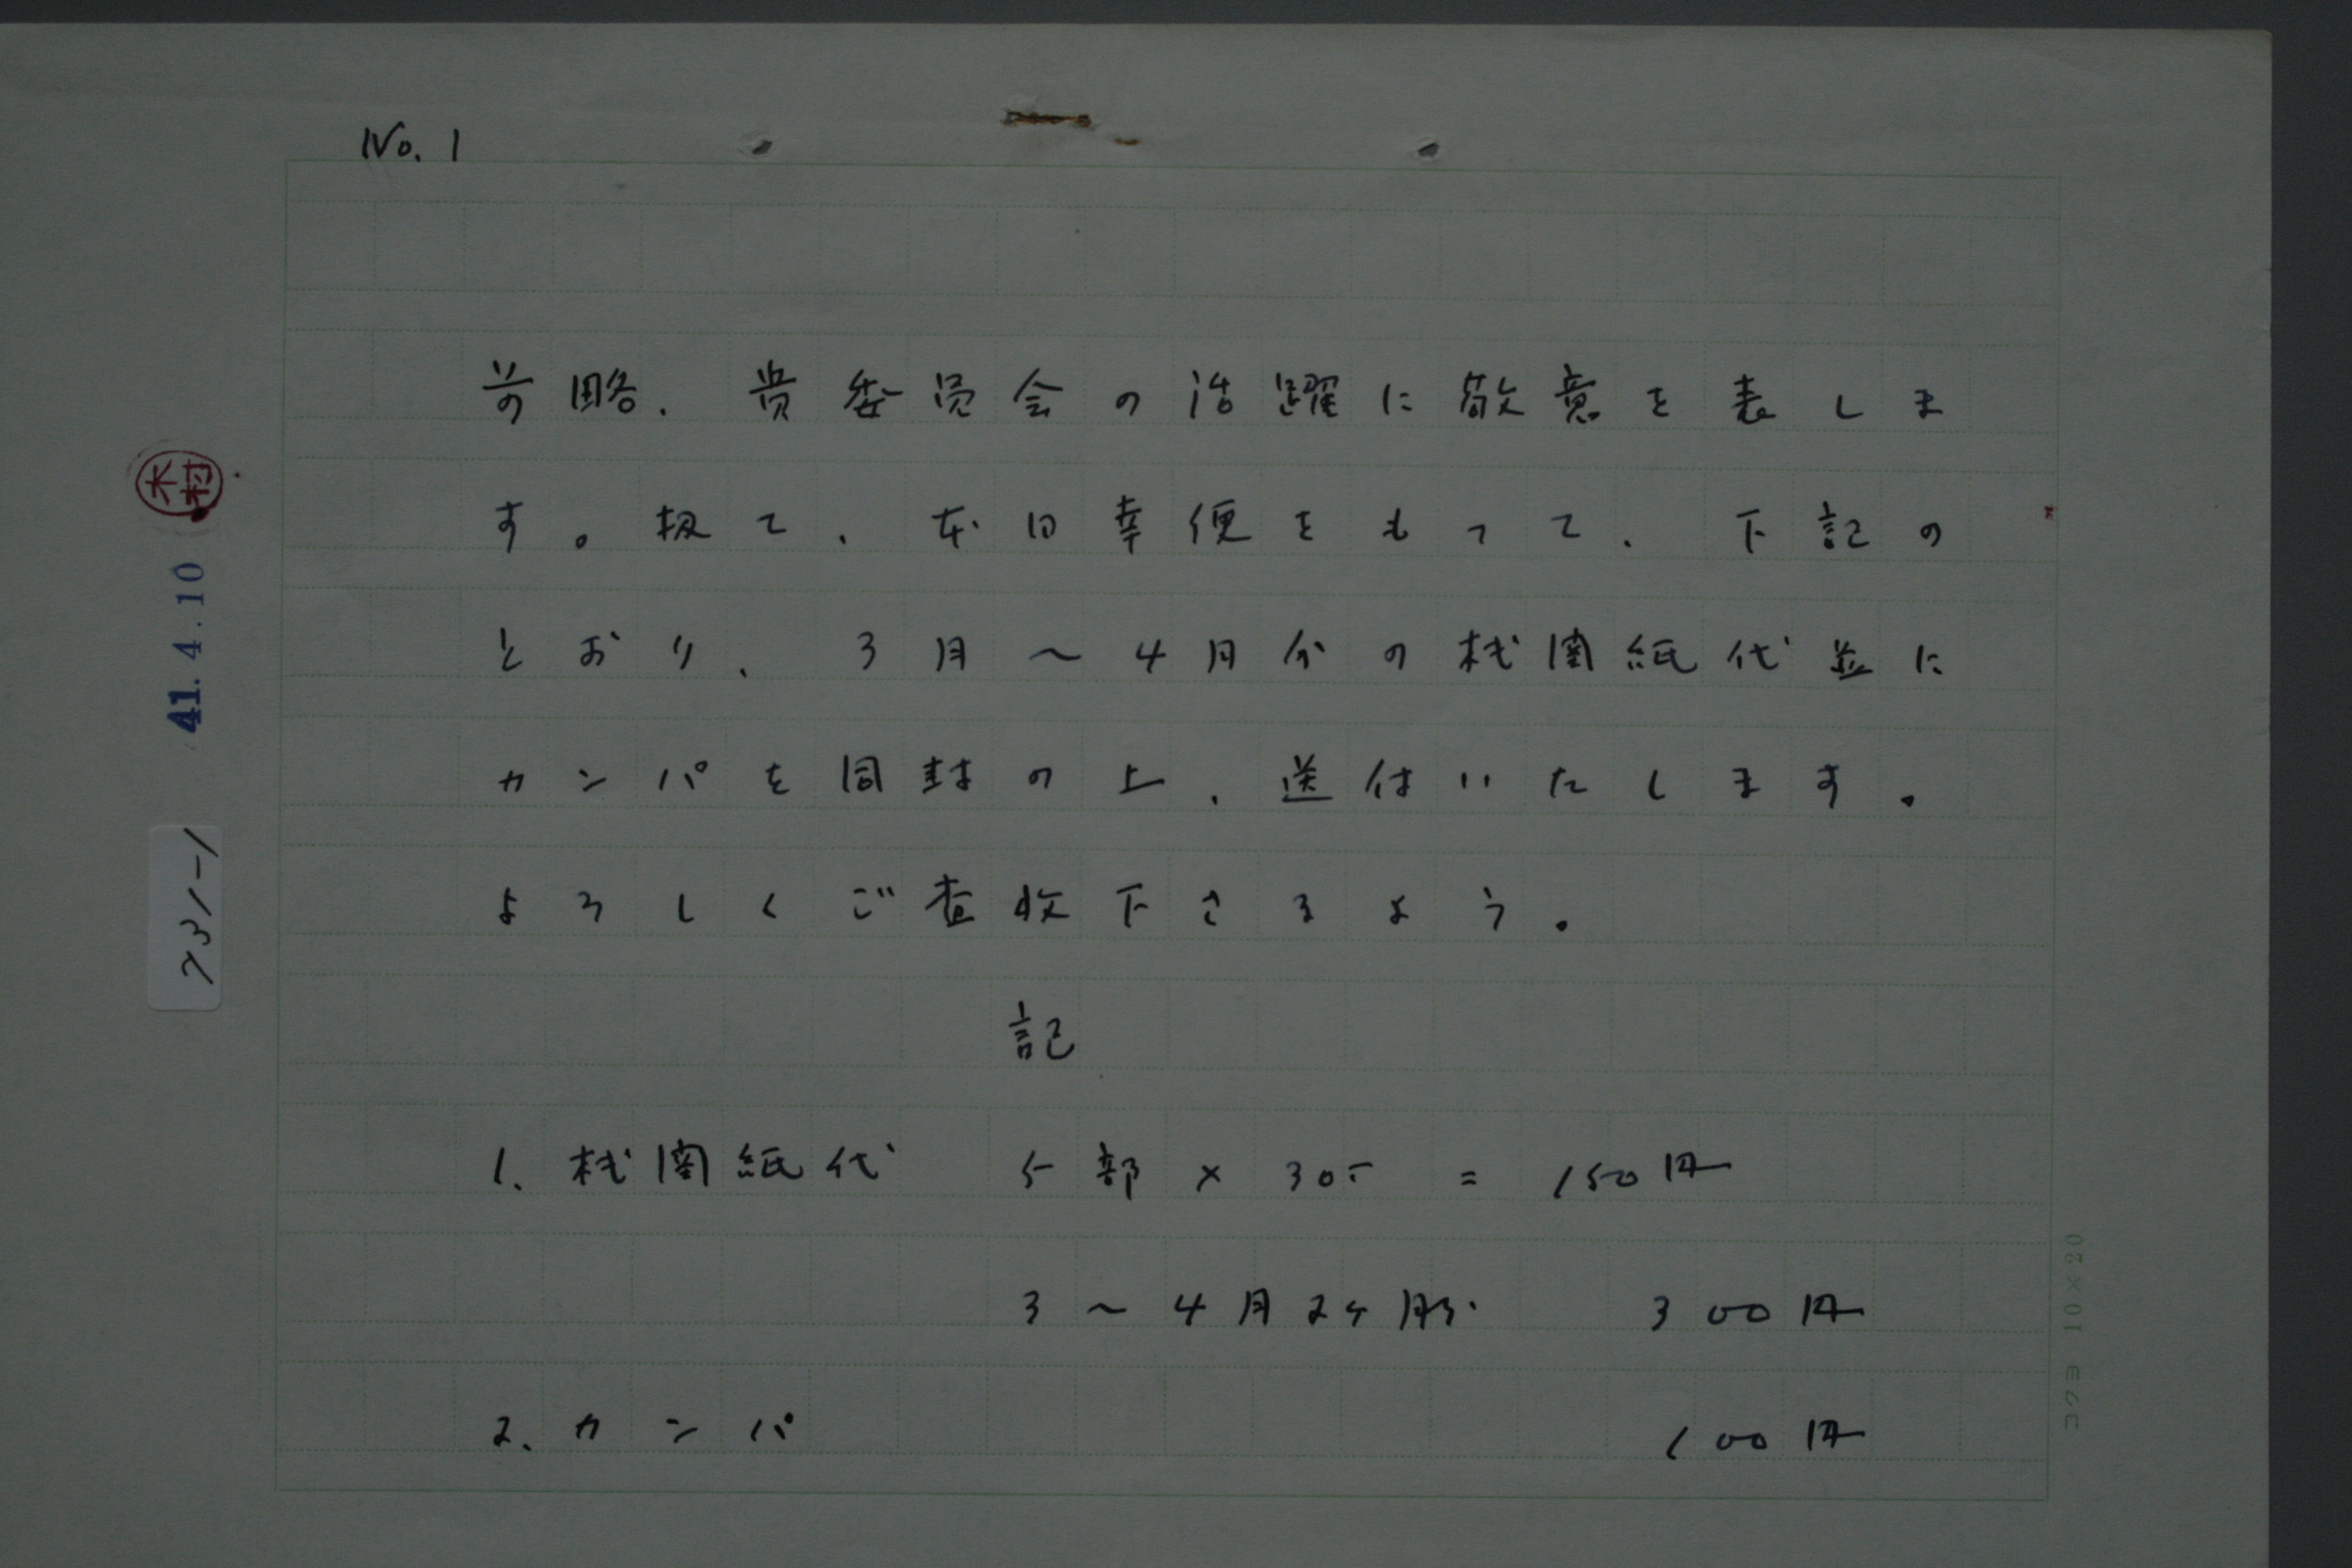 No. 1
前略、貴委員会の活躍に敬意を表しま
す。扱て、本日幸便をもって、下記の
とおり、3月～4月分の机関紙代並に
カンパを同封の上、送付いたします。
よろしくご査収下さるよう。
記
1. 机関紙代 5部×30円=150円
3～4月2ヶ月分 300円
2. カンパ 100円
木村
41.4.10
731-1
コクヨ 10×20